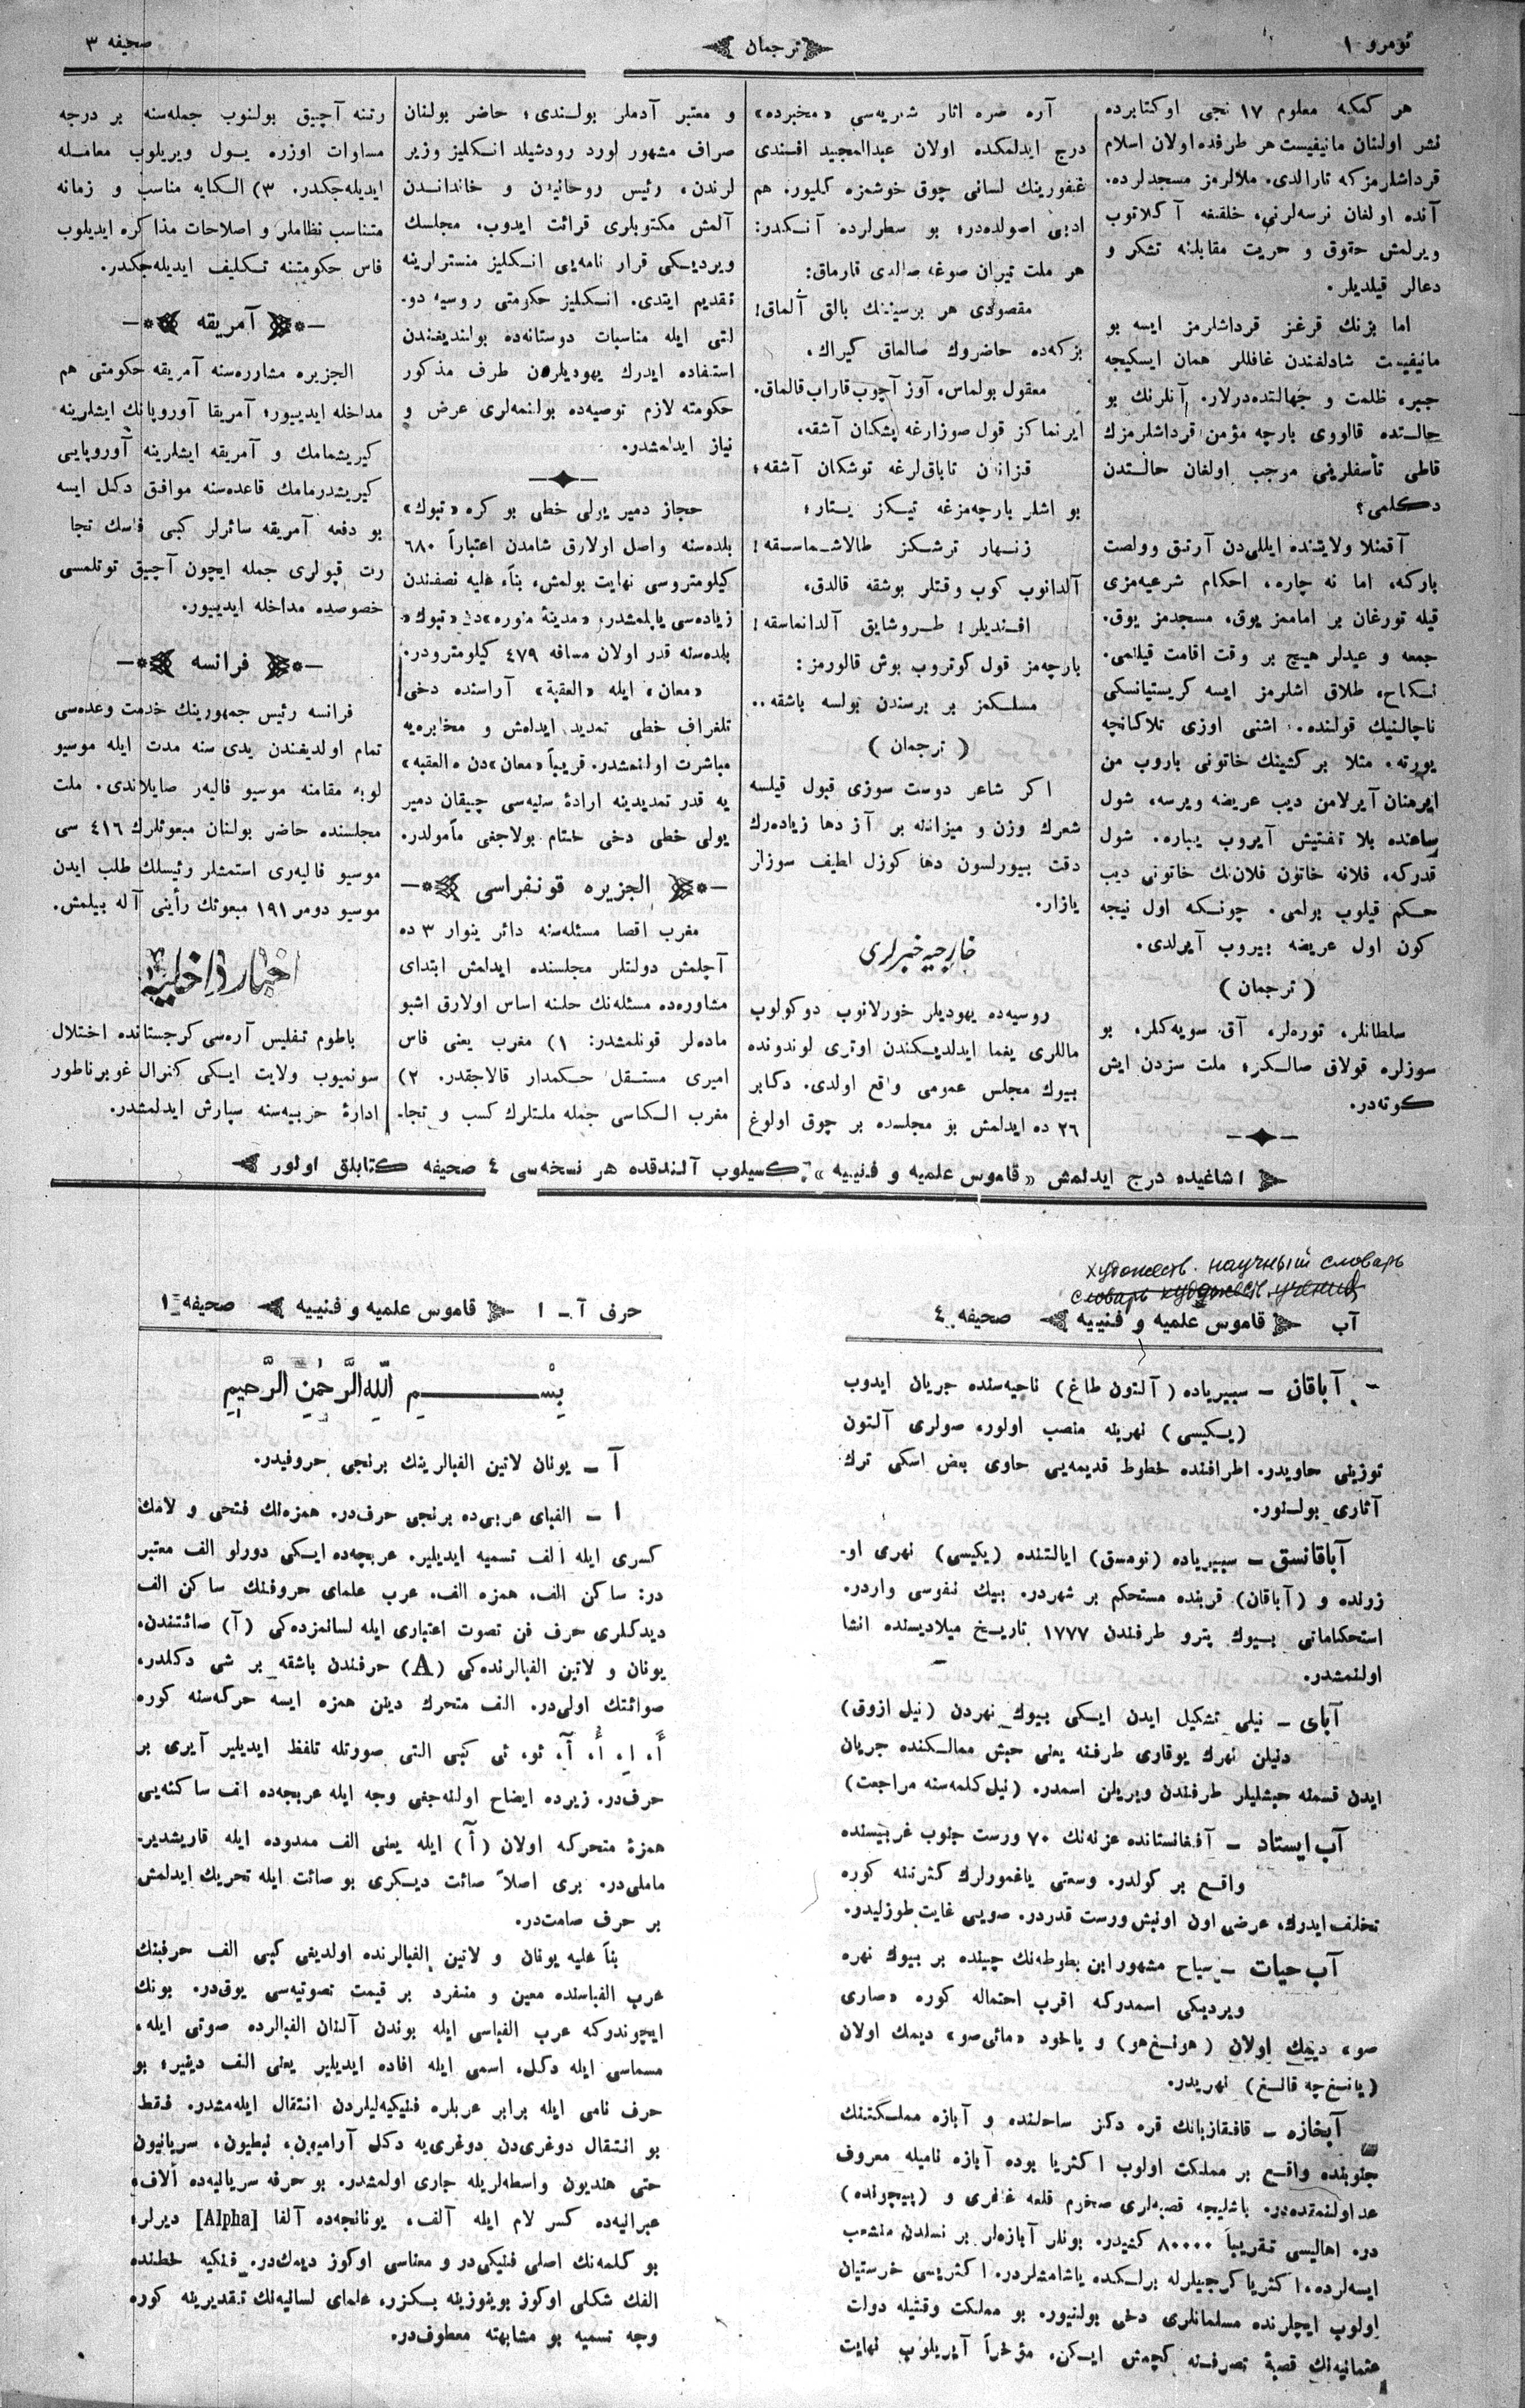 نومرو ١
ترجمان
صحیفه ٣
هر كمكه معلوم ١٧ نجی اوكتابرده
نشر اولنان مانیفیست هر طرفده اولان اسلام
قرداشلرمزكه تارالدی. ملالرمز مسجدلرده،
آنده اولغان نرسه‌لرنی، خلقغه آكلاتوب
ویرلمش حقوق و حریت مقابلنه تشكر و
دعالر قیلدیلر.
اما بزنك قرغز قرداشلرمز ایسه بو
مانیفیست شادلغندن غافللر همان ایسكیجه
جبر، ظلمت و جهالتده‌درلار. آنلرنك بو
حالتده قالووی بارچه مؤمن قرداشلرمزك
قاطی تأسفلرینی موجب اولغان حالتدن
دكلمی؟
آقمللا ولایتنده ایللی‌دن آرتق وولصت
باركه، اما نه چاره، احكام شرعیه‌مزی
قیله تورغان بر اماممز یوق، مسجدمز یوق.
جمعه و عیدلر هیچ بر وقت اقامت قیلنمی.
نكاح، طلاق اشلرمز ایسه كریستیانسكی
ناچالنیك قولنده. اشنی اوزی تلاكانچه
یورته. مثلا بر كشینك خاتونی باروب من
ایرمنان آیرلامن دیب عریضه ویرسه، شول
ساعنده بلا تفتیش آیروب یباره. شول
قدركه، فلانه خاتون فلان‌نك خاتونی دیب
حكم قیلوب بولمی. چونكه اول نیجه
كون اول عریضه بیروب آیرلدی.
( ترجمان )
سلطانلر، توره‌لر، آق سویه‌كلر، بو
سوزلره قولاق صالكز؛ ملت سزدن ایش
كوته‌در.
آره صره اثار شعریه‌سی «مخبرده»
درج ایدلمكده اولان عبدالمجید افندی
غفورینك لسانی چوق خوشمزه كلیور. هم
ادبی اصولده‌در؛ بو سطرلرده آنكدر:
هر ملت تیران صوغه صالدی قارماق:
مقصودی هر برسیننك بالق آلماق!
بزكه‌ده حاضروك صالماق كیراك.
معقول بولماس، آوز آچوب قاراب قالماق.
ایرنماكز قول صوزارغه پشكان آشقه،
قزاندن تاباق‌لرغه توشكان آشقه؛
بو اشلر بارچه‌مزغه تیكز یتار؛
زنهار ترشكز طالاشماسقه!
آلدانوب كوب وقتلر بوشقه قالدق،
افندیلر! طروشایق آلدانماسقه!
بارچه‌مز قول كوتروب بوش قالورمز:
مسلكمز بر برسندن بولسه باشقه..
( ترجمان )
اكر شاعر دوست سوزی قبول قیلسه
شعرك وزن و میزاننه بر آز دها زیاده‌رك
دقت بیورلسون دها كوزل لطیف سوزلر
یازار.
خارجیه خبرلری
روسیه‌ده یهودیلر خورلانوب دوكولوب
ماللری یغما ایدلدیكندن اوتری لوندونده
بیوك مجلس عمومی واقع اولدی. دكابر
٢٦ ده ایدلمش بو مجلسده بر چوق اولوغ
و معتبر آدملر بولندی؛ حاضر بولنان
صراف مشهور لورد رودشیلد انكلیز وزیر
لرندن، رئیس روحانیدن و خانداندن
آلمش مكتوبلری قرائت ایدوب، مجلسك
ویردیكی قرار نامه‌یی انكلیز منسترلرینه
تقدیم ایتدی. انكلیز حكومتی روسیه دو-
لتی ایله مناسبات دوستانه‌ده بولندیغندن
استفاده ایدرك یهودیلردن طرف مذكور
حكومته لازم توصیه‌ده بولنمه‌لری عرض و
نیاز ایدلمشدر.
حجاز دمیر یولی خطی بو كره «تبوك»
بلده‌سنه واصل اولارق شامدن اعتباراً ٦٨٠
كیلومتروسی نهایت بولمش، بناء علیه نصفندن
زیاده‌سی یاپلمشدر؛ «مدینۀ منوره»دن «تبوك»
بلده‌سنه قدر اولان مسافه ٤٧٩ كیلومترودر.
«معان» ایله «العقبة» آراسنده دخی
تلغراف خطی تمدید ایدلمش و مخابره‌یه
مباشرت اولنمشدر. قریباً «معان»دن «العقبه»
یه قدر تمدیدینه ارادۀ سنیه‌سی چیقان دمیر
یولی خطی دخی ختام بولاجغی مأمولدر.
الجزیره قونفراسی
مغرب اقصا مسئله‌سنه دائر ینوار ٣ ده
آچلمش دولتلر مجلسنده ایدلمش ابتدای
مشاوره‌ده مسئله‌نك حلنه اساس اولارق اشبو
ماده‌لر قونلمشدر: ١) مغرب یعنی فاس
امیری مستقل حكمدار قالاجقدر. ٢)
مغرب الكاسی جمله ملتلرك كسب و تجا-
رتنه آچیق بولنوب جمله‌سنه بر درجه
مساوات اوزره یول ویریلوب معامله
ایدیله‌جكدر. ٣) الكایه مناسب و زمانه
متناسب نظاملر و اصلاحات مذاكره ایدیلوب
فاس حكومتنه تكلیف ایدیله‌جكدر.
آمریقه
الجزیره مشاوره‌سنه آمریقه حكومتی هم
مداخله ایدییور؛ آمریقا آوروپانك ایشلرینه
كیریشمامك و آمریقه ایشلرینه آوروپایی
كیریشدرمامك قاعده‌سنه موافق دكل ایسه
بو دفعه آمریقه سائرلر كبی فاسك تجا
رت قپولری جمله ایچون آچیق توتلمسی
خصوصده مداخله ایدییور.
فرانسه
فرانسه رئیس جمهورینك خدمت وعده‌سی
تمام اولدیغندن یدی سنه مدت ایله موسیو
لوبه مقامنه موسیو فالیه‌ر صایلاندی. ملت
مجلسنده حاضر بولنان مبعوثلرك ٤١٦ سی
موسیو فالیه‌ری استمشلر رئیسلك طلب ایدن
موسیو دومر ١٩١ مبعوثك رأینی آله بیلمش.
اخبار داخلیه
باطوم تفلیس آره‌سی كرجستانده اختلال
سونمیوب ولایت ایكی كنرال غوبرناطور
ادارۀ حربیه‌سنه سپارش ایدلمشدر.
اشاغیده درج ایدلمش «قاموس علمیه و فنییه» كسیلوب آلندقده هر نسخه‌سی ٤ صحیفه كتابلق اولور
художеств. научный словарь
آب
قاموس علمیه و فنییه
صحیفه ٤
آباقان – سیبریاده (آلتون طاغ) ناحیه‌سنده جریان ایدوب
(یكیسی) نهرینه منصب اولور، صولری آلتون
توزینی حاویدر. اطرافنده خطوط قدیمه‌یی حاوی بعض اسكی ترك
آثاری بولنور.
آباقانسق – سیبریاده (تومسق) ایالتنده (یكیسی) نهری او-
زرنده و (آباقان) قربنده مستحكم بر شهردر. بیك نفوسی واردر.
استحكاماتی بیوك پترو طرفندن ١٧٧٧ تاریخ میلادیسنده انشا
اولنمشدر.
آبای – نیلی تشكیل ایدن ایكی بیوك نهردن (نیل ازرق)
دنیلن نهرك یوقاری طرفنه یعنی حبش ممالكنده جریان
ایدن قسمنه حبشلیلر طرفندن ویریلن اسمدر. (نیل كلمه‌سنه مراجعت)
آب ایستاد – آفغانستانده غزنه‌نك ٧٠ ورست جنوب غربیسنده
واقع بر كولدر. وسعتی یاغمورلرك كثرتنه كوره
تخلف ایدرك، عرضی اون اونبش ورست قدردر. صویی غایت طوزلیدر.
آب حیات – سیاح مشهور ابن بطوطه‌نك چینده بر بیوك نهره
ویردیكی اسمدركه اقرب احتماله كوره «صاری
صو» دیمك اولان (هوانغ‌هو) و یاخود «مائی صو» دیمك اولان
(یانغ‌چه قالنغ) نهریدر.
آبخازه – قافقازیانك قره دكز ساحلنده و آبازه مملكتنك
جنوبنده واقع بر مملكت اولوب اكثریا بوده آبازه نامیله معروف
عد اولنمقده‌در. باشلیجه قصبه‌لری صخوم قلعه غاغری و (بیچونده)
در. اهالیسی تقریباً ٨٠٠٠٠ كشیدر. بونلر آبازه‌لر بر نسلدن منشعب
ایسه‌لرده، اكثریا كرجیلرله برلكده یاشامشلردر. اكثریسی خرستیان
اولوب ایچلرنده مسلمانلری دخی بولنیور. بو مملكت وقتیله دولت
عثمانیه‌نك قصبۀ تصرفنه كچمش ایكن، مؤخراً آیریلوب نهایت
حرف آ – ا
قاموس علمیه و فنییه
صحیفه ١
بسم الله الرحمن الرحیم
آ – یونان لاتین الفبالرینك برنجی حروفیدر.
ا – الفبای عربی‌ده برنجی حرف‌در. همزه‌نك فتحی و لامك
كسری ایله الف تسمیه ایدیلیر. عربجه‌ده ایكی دورلو الف معتبر
در: ساكن الف، همزه الف. عرب علمای حروفنك ساكن الف
دیدكلری حرف فن تصوت اعتباری ایله لسانمزده‌كی (آ) صائتندن،
یونان و لاتین الفبالرنده‌كی (A) حرفندن باشقه بر شی دكلدر،
صوائتك اولی‌در. الف متحرك دینن همزه ایسه حركه‌سنه كوره
أ، إ، أ، آ، ئو، ئی كبی التی صورتله تلفظ ایدیلیر آیری بر
حرف‌در. زیرده ایضاح اولنه‌جغی وجه ایله عربجه‌ده الف ساكنه‌یی
همزۀ متحركه اولان (أ) ایله یعنی الف ممدوده ایله قاریشدیر-
ماملی‌در. بری اصلاً صائت دیكری بو صائت ایله تحریك ایدلمش
بر حرف صامت‌در.
بناً علیه یونان و لاتین الفبالرنده اولدیغی كبی الف حرفینك
عرب الفباسنده معین و منفرد بر قیمت تصوتیه‌سی یوق‌در. بونك
ایچوندركه عرب الفباسی ایله بوندن آلنان الفبالرده صوتی ایله،
مسماسی ایله دكل، اسمی ایله افاده ایدیلیر یعنی الف دینیر؛ بو
حرف نامی ایله برابر عربلره فنیكیه‌لیلردن انتقال ایله‌مشدر. فقط
بو انتقال دوغری‌دن دوغری‌یه دكل آرامیون، نبطیون، سریانیون
حتی هندیون واسطه‌لریله جاری اولمشدر. بو حرفه سریانیه‌ده ألاف،
عبرانیه‌ده كسر لام ایله آلف، یونانجه‌ده آلفا [Alpha] دیرلر؛
بو كلمه‌نك اصلی فنیكی‌در و معناسی اوكوز دیمك‌در. فنیكیه خطنده
الفك شكلی اوكوز بوینوزینه بكزر، علمای لسانیه‌نك تقدیرینه كوره
وجه تسمیه بو مشابهته معطوف‌در.